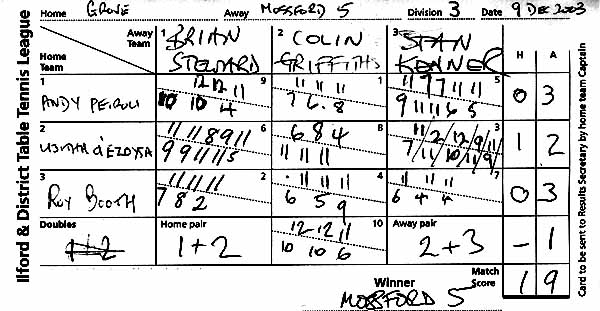 Ilford & District Table Tennis League
Home GROVE Away MOSSFORD 5 Division 3 Date 9 DEC 2003
Away Team 1 BRIAN STEWARD 2 COLIN GRIFFITHS 3 STAN KENNER H A
Home Team
1 ANDY 9 12 12 11 10 10 4 1 11 11 11 7 6 8 5 11 7 7 11 11 9 11 11 6 5 0 3
2 6 11 11 8 9 11 9 9 11 11 5 8 6 8 4 11 11 11 3 1 2
3 ROY BOOTH 2 11 11 11 7 8 2 4 11 11 11 6 5 9 7 11 11 11 6 4 4 0 3
Doubles 1+2 Home pair 1+2 10 12 12 11 10 10 6 Away pair 2+3 - 1
Winner MOSSFORD 5 Match Score 1 9
Card to be sent to Results Secretary by home team Captain